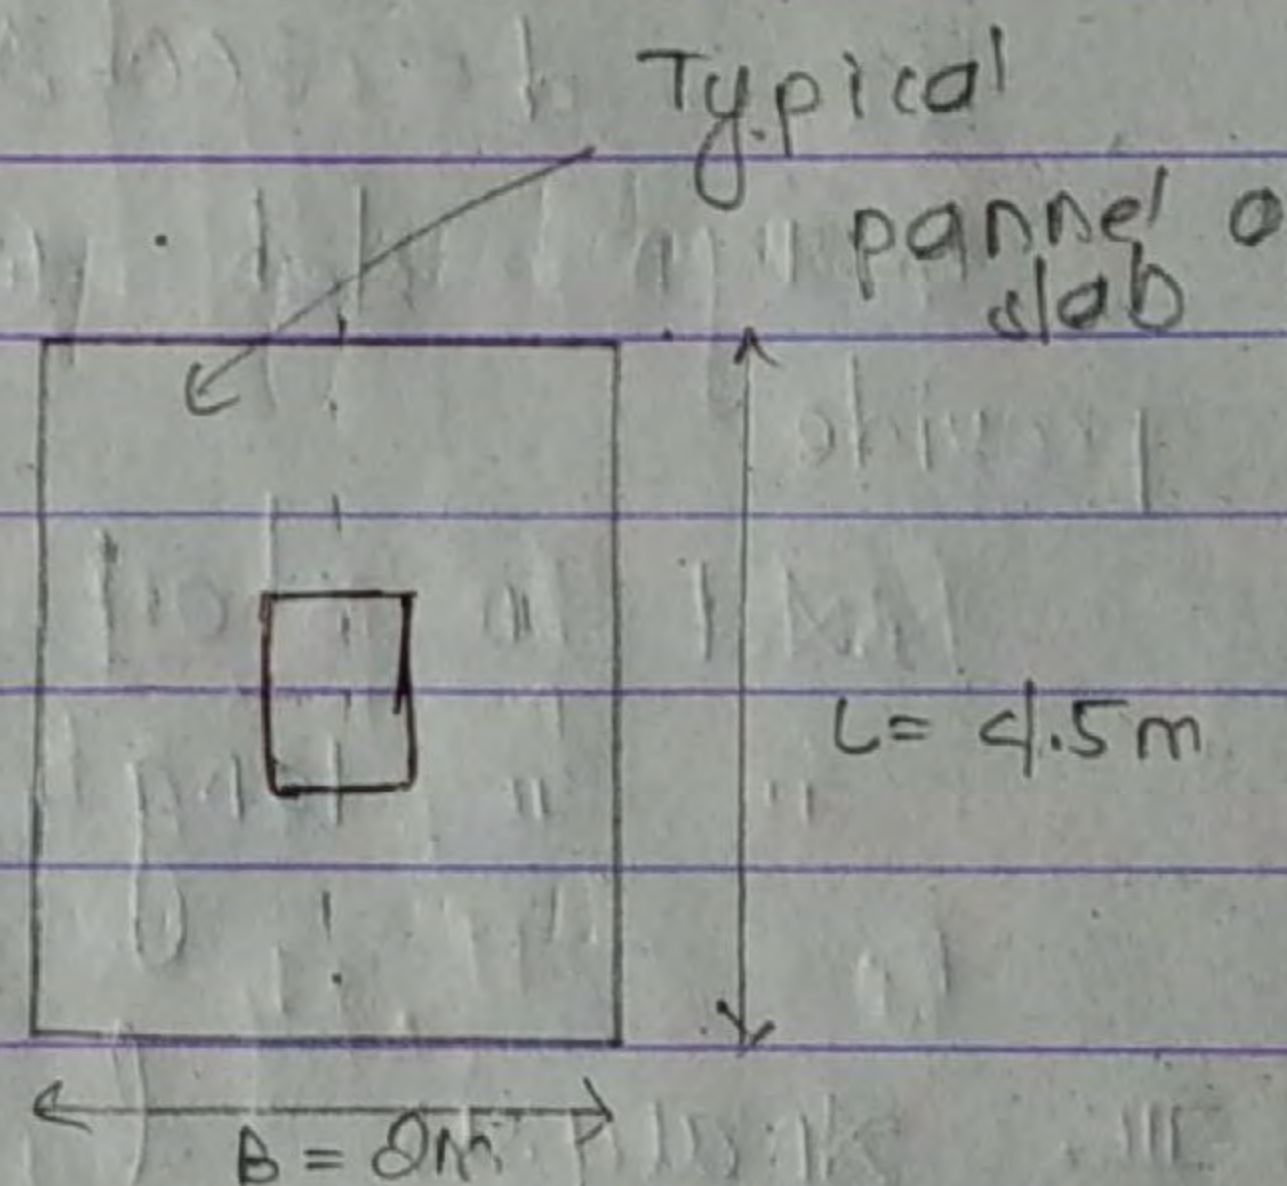 Typical
pannel o
slab
L = 4.5m
B = 2m